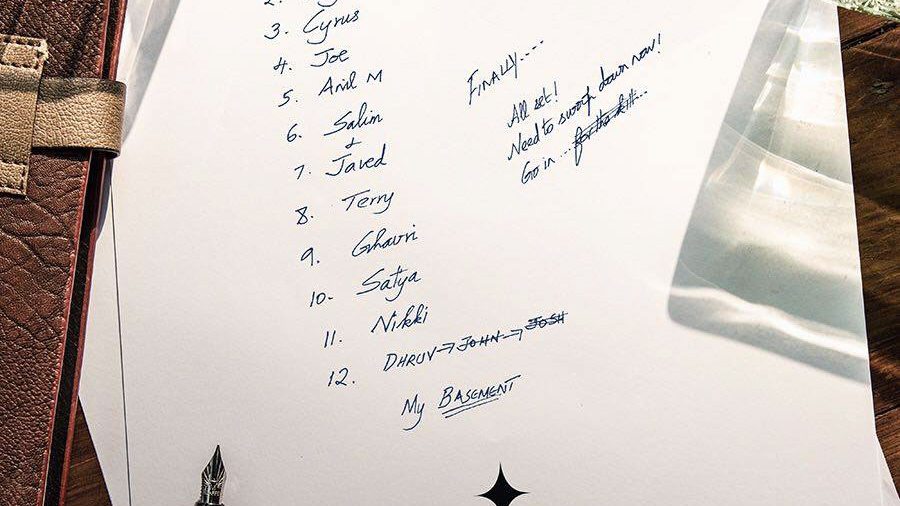 2.
3. Cyrus
4. Joe
5. Anil M
6. Salim
&
7. Javed
8. Terry
9. Ghavri
10. Satya
11. Nikki
12. DHRUV → JOHN → JOSH
My BASEMENT
FINALLY....
All set!
Need to swoop down now!
Go in ... for the kill...